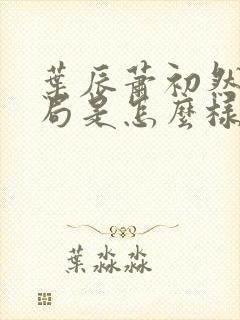 葉辰蕭初然
局是怎麼樣
葉淼淼